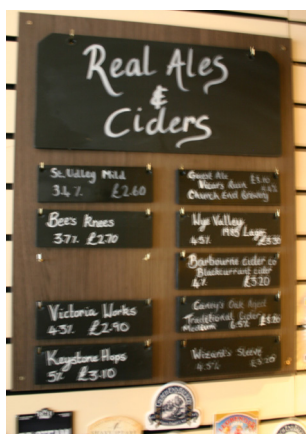 Real Ales
&
Ciders
St. Udlog Mild
3.4% £2.60
Bee's Knees
3.7% £2.70
Victoria Works
4.3% £2.90
Keystone Hops
5% £3.10
Guest Ale
Church End Brewery
Wye Valley
1985 Lager
4.5%
Barbourne cider co
Blackcurrant cider
4% £3.20
Oak Aged
Traditional Cider
Medium 6.5%
Wizard's Sleeve
4.5%